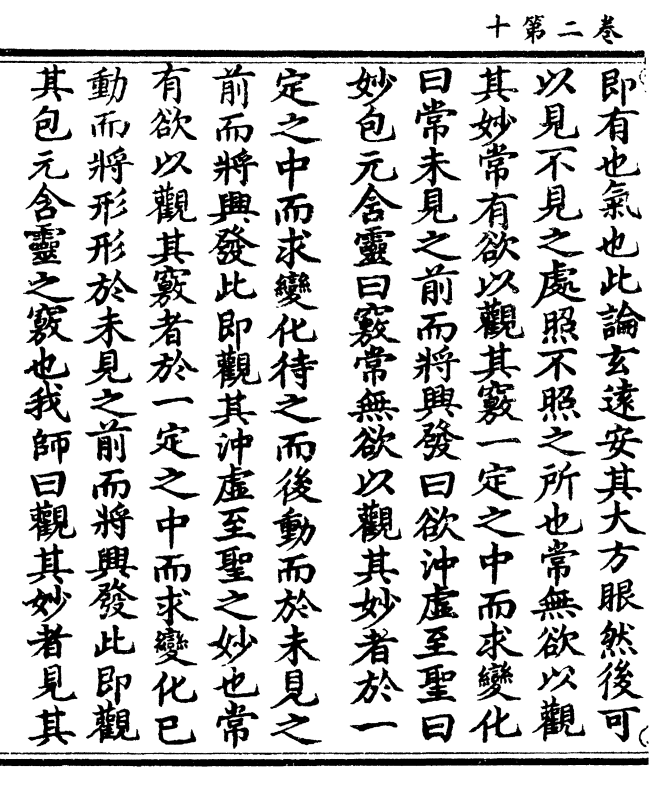 十第二卷
即有也氣也此論玄遠安其大方眼然後可
以見不見之處照不照之所也常無欲以觀
其妙常有欲以觀其竅一定之中而求變化
曰常未見之前而將興發曰欲沖虛至聖曰
妙包元含靈曰竅常無欲以觀其妙者於一
定之中而求變化待之而後動而於未見之
前而將興發此即觀其沖虛至聖之妙也常
有欲以觀其竅者於一定之中而求變化已
動而將形形於未見之前而將興發此即觀
其包元含靈之竅也我師曰觀其妙者見其